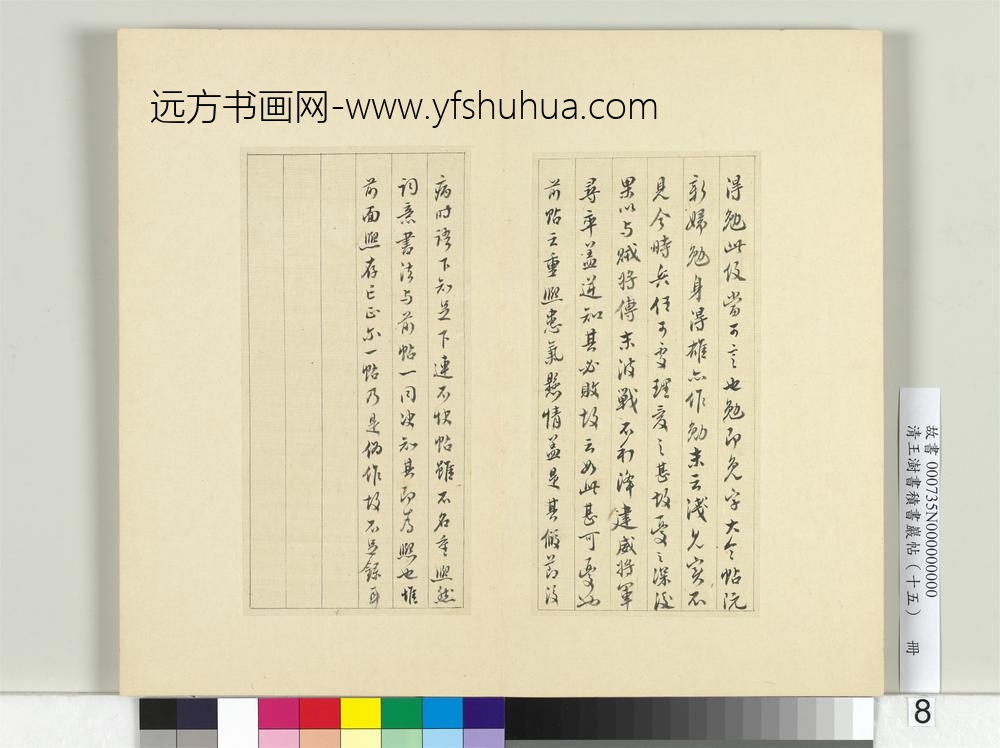 远方书画网-www.yfshuhua.com
得勉此役當可言也勉即免字大令帖阮
新婦勉身得雄亦作勉末云淺兄實不
見今時兵任可處理憂之甚故憂之深後
果以与賊將傅末波戰不利降建威將軍
尋卒蓋逆知其必敗故云如此甚可憂也
前帖云重熙患氣懸情蓋是其假節後
病时語下知足下連不快帖雖不名重熙然
詞意書法与前帖一同決知其即為熙也惟
前面熙存亡正尔一帖乃是偽作故不足錄耳
故書 000735N000000000
清王澍書積書巖帖（十五） 冊
8